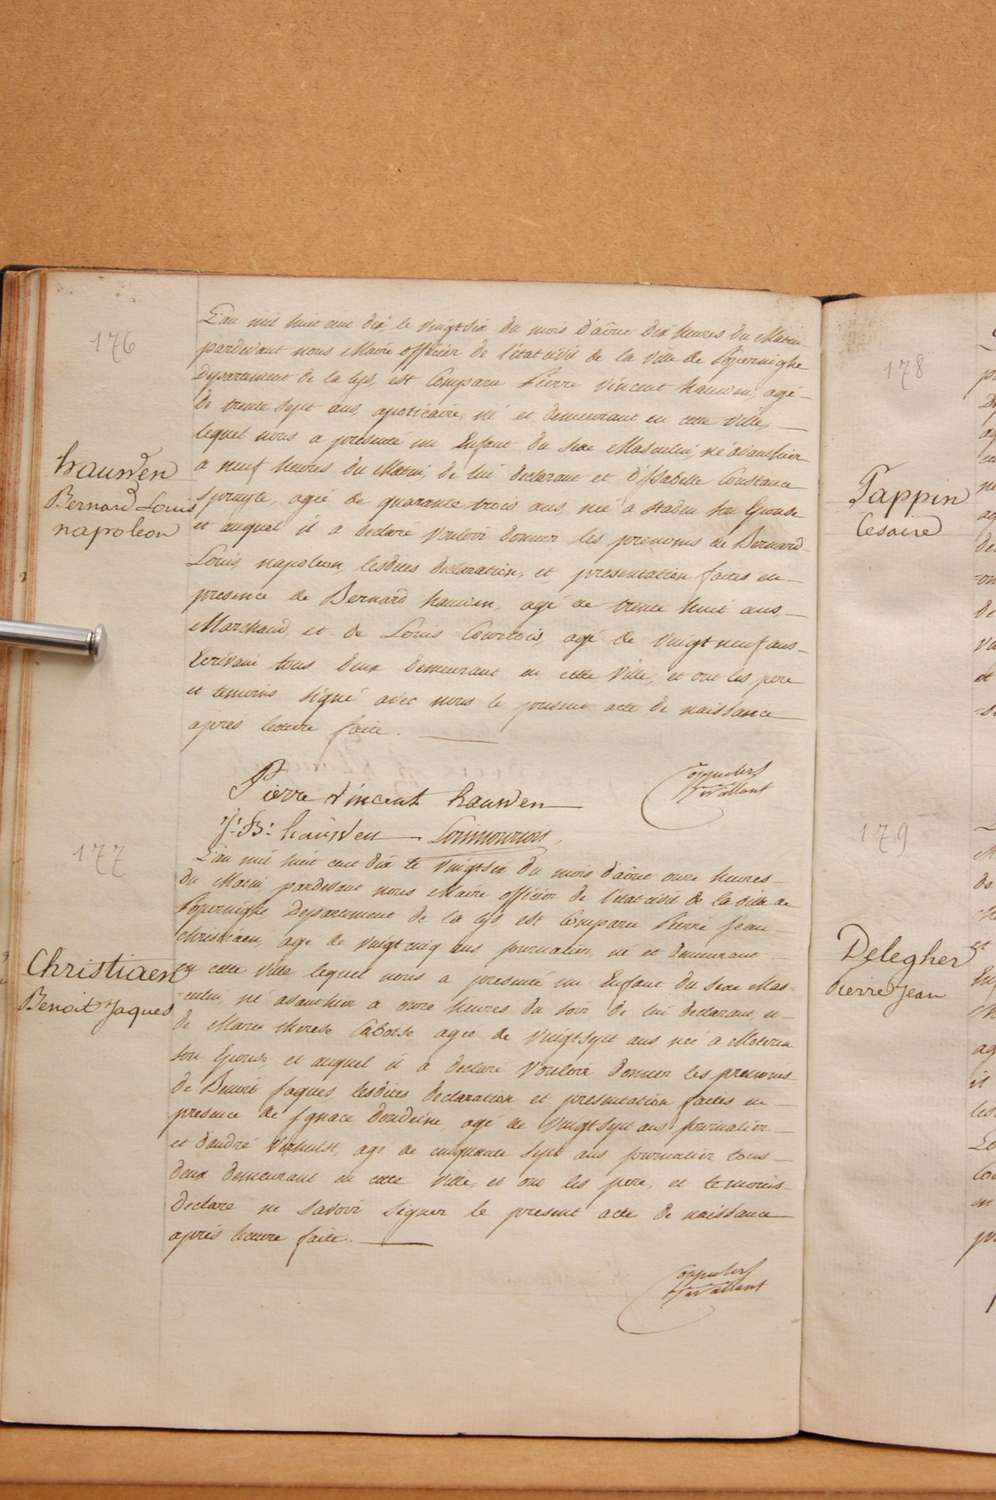 176
hauwen
Bernard Louis
napoleon
L'an mil huit cent dix le vingtsix du mois d'aout dix heures du Matin
pardevant nous Maire officier de l'etat civil de la ville de Poperinghe
Departement de la Lys, est Comparu Pierre Vincent hauwen, agé
de trente sept ans, apoticaire, né et demeurant en cette ville,
lequel nous a presenté un Enfant du sexe Masculin, né avanthier
a neuf heures du Matin, de lui declarant et d'Isabelle Constance
agée de quarante trois ans, née a Staden son Epouse
et auquel il a declaré vouloir donner les prenoms de Bernard
Louis napoleon, lesdites declaration, et presentation faites en
presence de Bernard hauwen, agé de trente huit ans
Marchand, et de Louis agé de vingt neuf ans
Ecrivain tous deux demeurant en cette ville, et ont les pere
et temoins signé avec nous le present acte de naissance
apres lecture faite.
Pierre Vincent hauwen
J: B: hauwen
177
Christiaen
Benoit Jaques
L'an mil huit cent dix le vingtsix du mois d'aout onze heures
du Matin, pardevant nous Maire officier de l'etat civil de la ville de
Poperinghe Departement de la Lys est Comparu Pierre Jean
Christiaen, agé de vingt cinq ans journalier, né et demeurant
en cette ville lequel nous a presenté un Enfant du sexe Mas-
-culin, né avanthier a onze heures du soir de lui declarant, et
de Marie therese agée de vingtsept ans née a
son Epouse et auquel il a declaré vouloir donner les prenoms
de Benoit Jaques lesdites declaration et presentation faites en
presence de Ignace agé de vingtsept ans journalier
et d'andré Verhulst, agé de cinquante sept ans journalier tous
deux demeurant en cette ville, et ont les pere, et temoins
declaré ne savoir signer le present acte de naissance
après lecture faite.
178
Tappin
Cesaire
179
Delegher
Pierre Jean